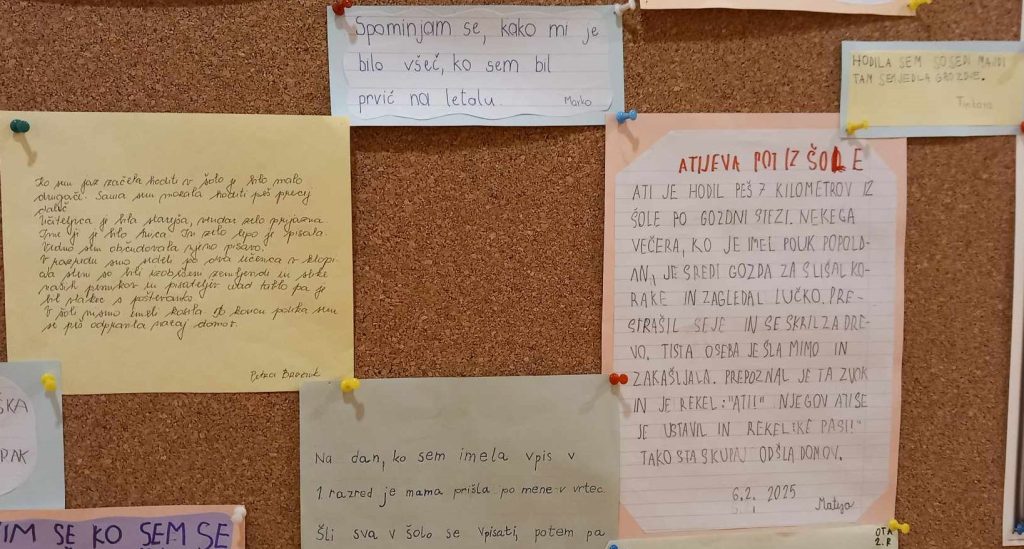 Spominjam se, kako mi je
bilo všeč, ko sem bil
prvič na letalu.
Marko
HODILA SEM SOSEDI MAJDI
TAM SEM JEDLA GROZDJE.
Ko sem jaz začela hoditi v šolo je bilo malo
drugače. Sama sem morala hoditi peš precej
daleč
Učiteljica je bila starejša, vendar zelo prijazna.
Ime ji je bilo In zelo lepo je pisala.
Vedno sem občudovala njeno pisavo.
V razredu smo sedeli po dva učenca v klopi
na steni so bili izobešeni zemljevidi in slike
naših pesnikov in pisateljev nad tablo pa je
bil
V šoli nismo imeli kosila. Ob koncu pouka sem
se peš odpravila nazaj domov.
Petra
ATIJEVA POT IZ ŠOLE
ATI JE HODIL PEŠ 7 KILOMETROV IZ
ŠOLE PO GOZDNI STEZI. NEKEGA
VEČERA, KO JE IMEL POUK POPOLD-
AN, JE SREDI GOZDA ZA SLIŠAL KO-
RAKE IN ZAGLEDAL LUČKO. PRE-
STRAŠIL SE JE IN SE SKRIL ZA DRE-
VO. TISTA OSEBA JE ŠLA MIMO IN
ZAKAŠLJALA. PREPOZNAL JE TA ZVOK
IN JE REKEL: "ATI!" NJEGOV ATI SE
JE USTAVIL IN REKEL:
TAKO STA SKUPAJ ODŠLA DOMOV.
6.2. 2025
Matija
Na dan, ko sem imela vpis v
1. razred je mama prišla po mene v vrtec.
Šli sva v šolo se vpisati, potem pa
ŠKA
PAK
IM SE KO SEM SE
OTA
2.R